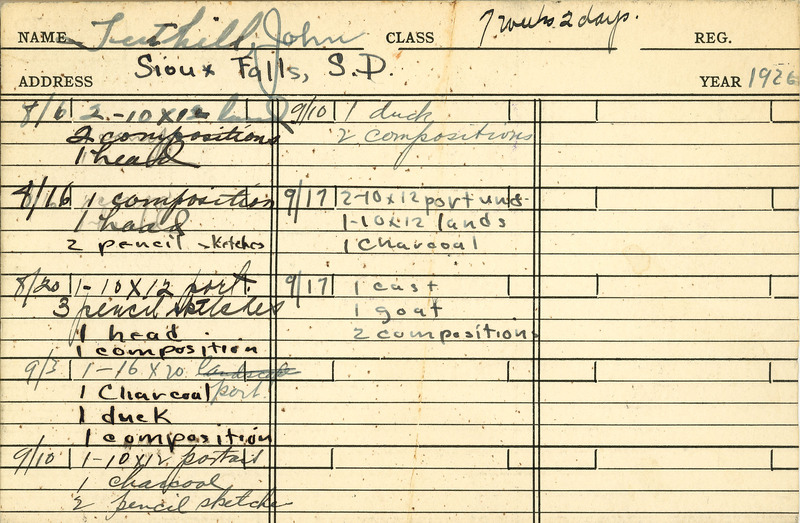 NAME Tuthill, John CLASS 7 weeks. 2 days. REG.
ADDRESS Sioux Falls, S.D. YEAR 1926
8/6 2.-10x12 land
2 compositions
1 head
8/16 1 composition
1 head
2 pencil sketches
8/20 1-10x12 port.
3 pencil sketches
1 head.
1 composition
9/3 1-16x20 landscape
port.
1 Charcoal
1 duck
1 composition
9/10 1-10x12 portrait
1 charcoal
2 pencil sketche
9/10 1 duck
2 compositions
9/17 2-10x12 port und
1-10x12 lands
1 Charcoal
9/17 1 cast
1 goat
2 compositions